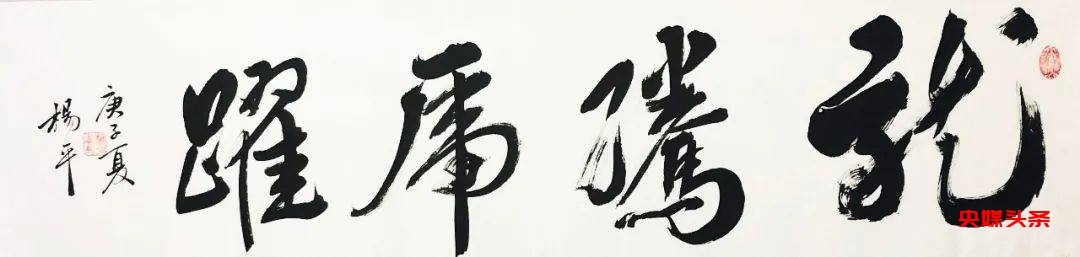 龍騰虎躍
庚子夏
楊平
央媒头条